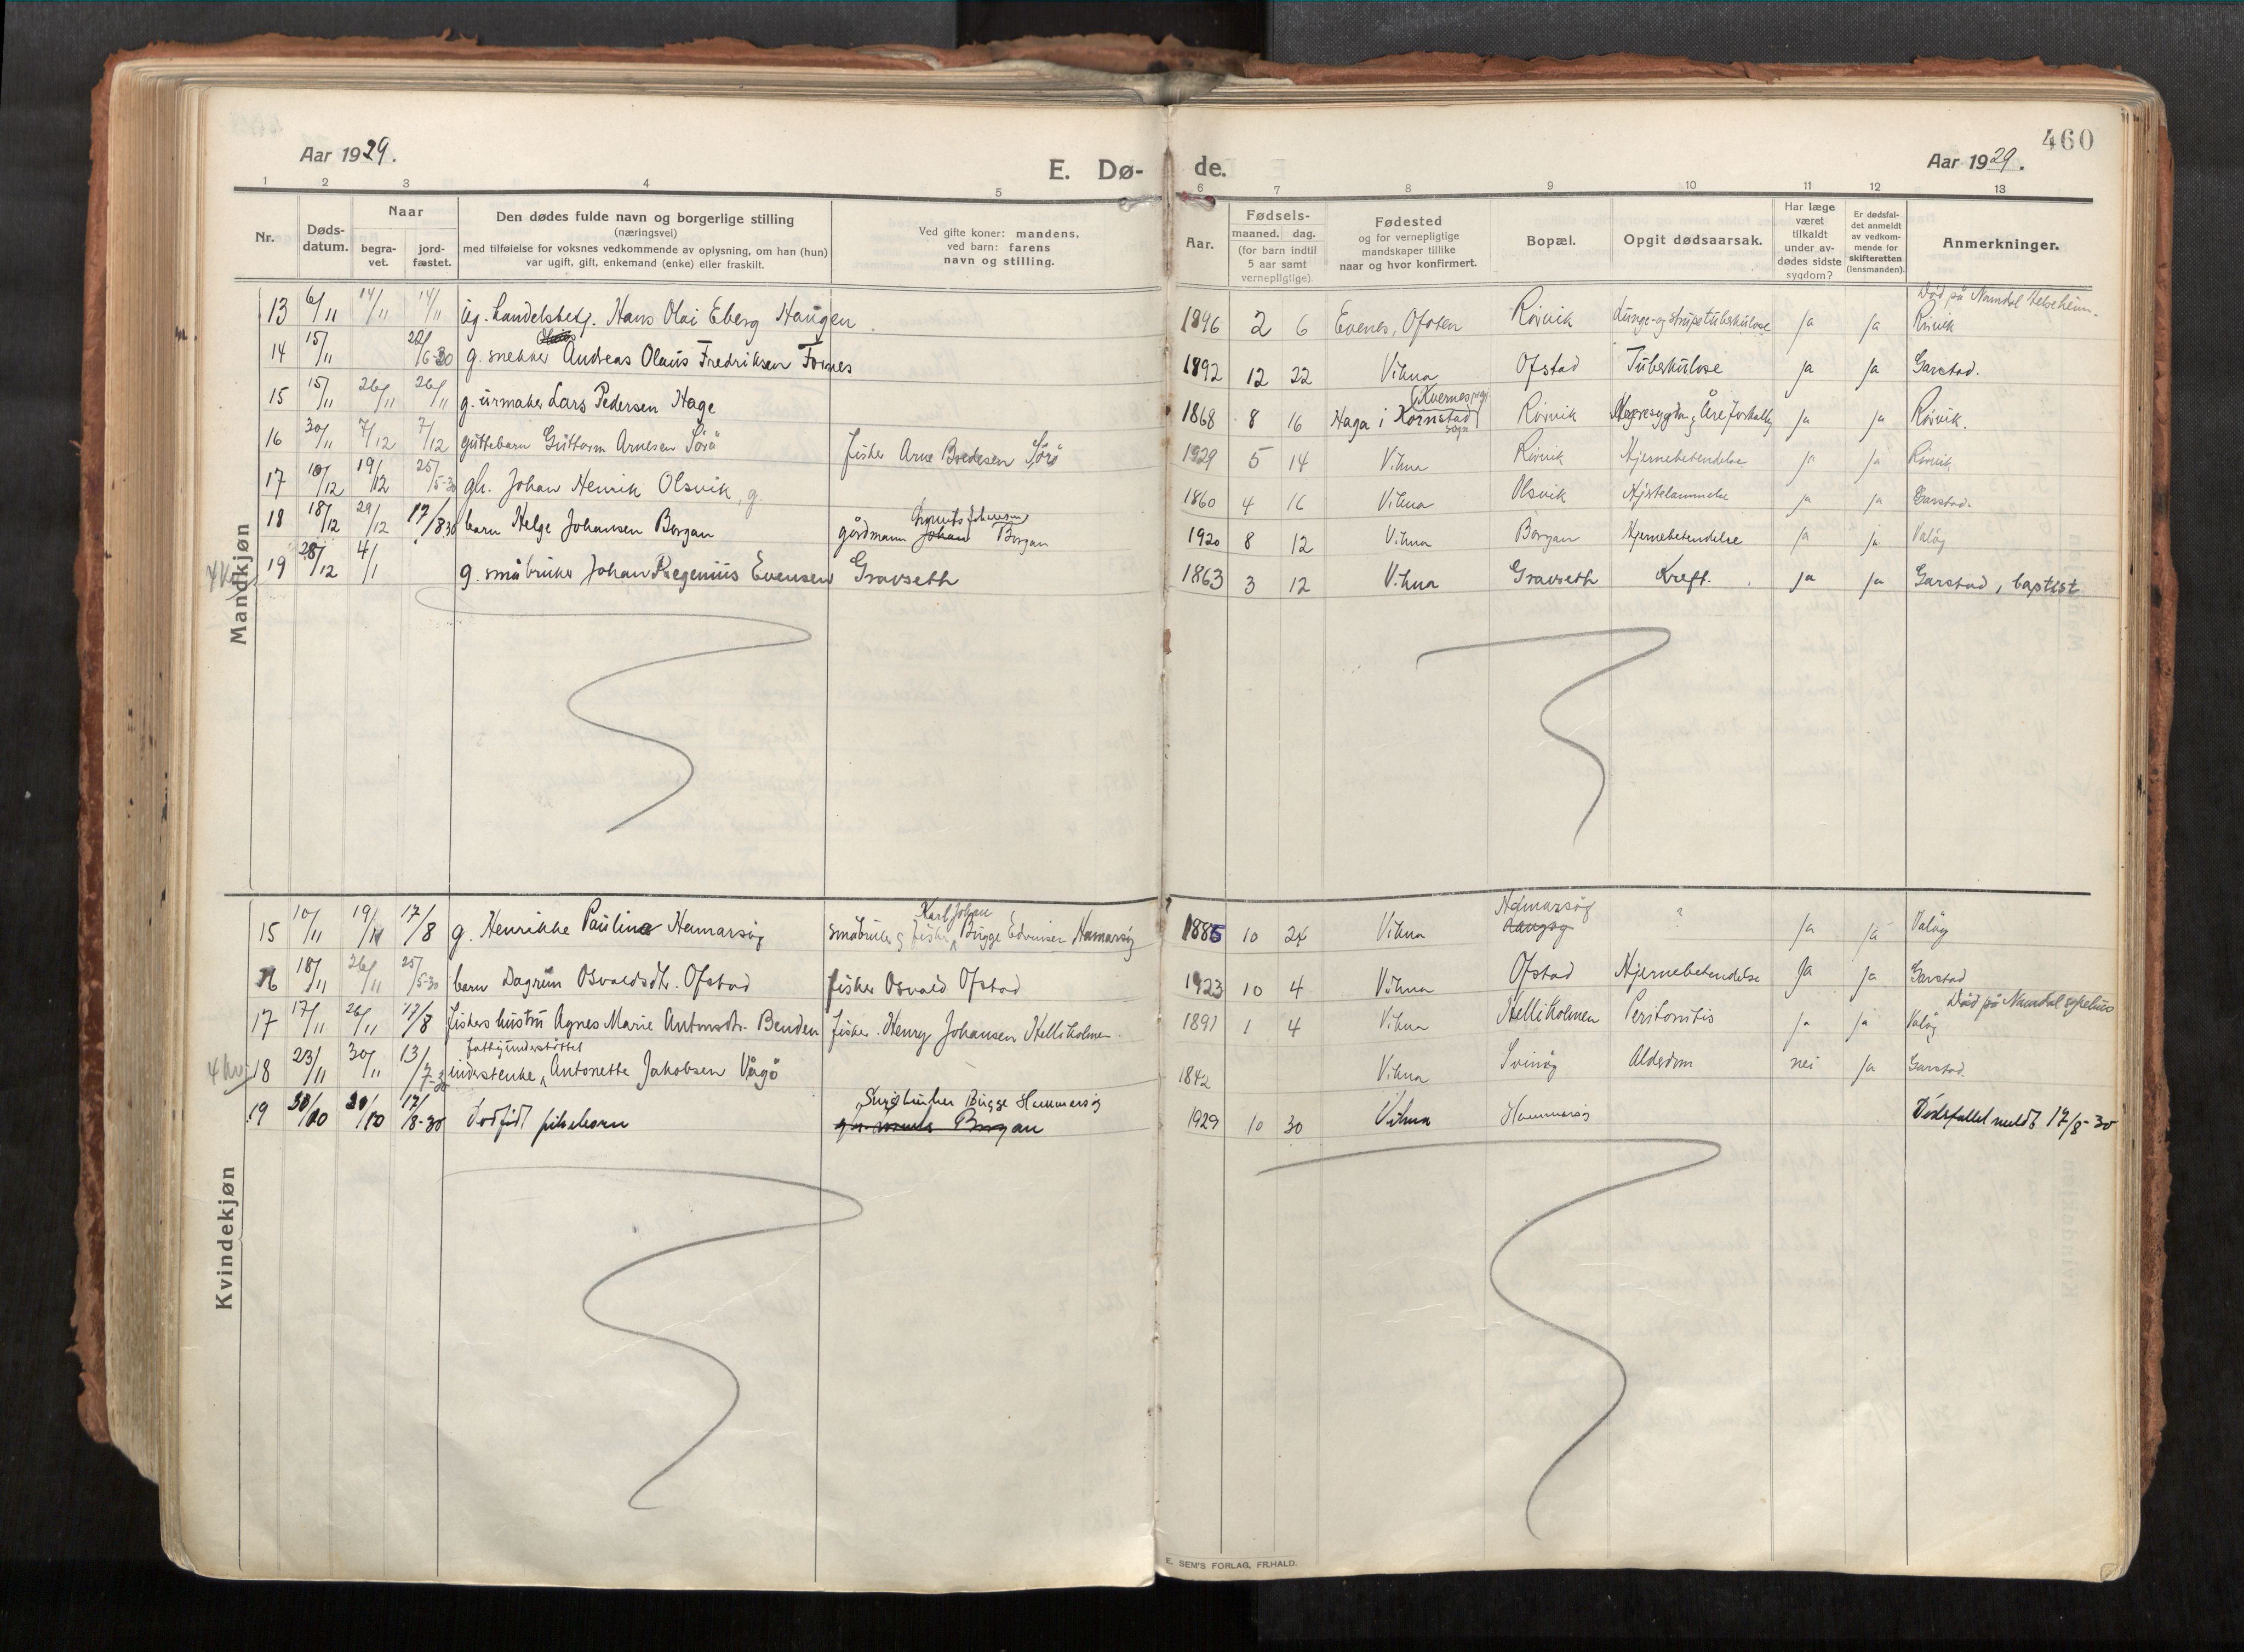 460
Aar 1929.
E. Dø-
de.
Aar 1929.
1 2 3 4 5 6 7 8 9 10 11 12 13
Nr.
Døds-
datum.
Naar
begra-
vet.
jord-
fæstet.
Den dødes fulde navn og borgerlige stilling
(næringsvei)
med tilføielse for voksnes vedkommende av oplysning, om han (hun)
var ugift, gift, enkemand (enke) eller fraskilt.
Ved gifte koner: mandens,
ved barn: farens
navn og stilling.
Aar.
Fødsels-
maaned. dag.
(for barn indtil
5 aar samt
vernepligtige)
Fødested
og for vernepligtige
mandskaper tillike
naar og hvor konfirmert.
Bopæl.
Opgit dødsaarsak.
Har læge
været
tilkaldt
under av-
dødes sidste
sygdom?
Er dødsfal-
det anmeldt
av vedkom-
mende for
skifteretten
(lensmanden).
Anmerkninger.
Mandkjøn
Død på Namdal Helseheim.
13 6/11 14/11 14/11 ug. handelsbetj. Hans Olai Eberg Haugen 1896 2 6 Evenes, Ofoten Rørvik Lunge- og strupetuberkulose ja ja Rørvik
14 15/11 20/6-30 g. snekker Andreas Olaus Fredriksen Fornes 1892 12 22 Vikna Ofstad Tuberkulose ja ja Garstad.
15 15/11 26/11 26/11 g. urmaker Lars Pedersen Hage 1868 8 16 Haga i Kornstad sogn Kvernes Rørvik Åreforkalkn. ja ja Rørvik.
16 30/11 7/12 7/12 guttebarn Guttorm Arnesen Sørö fisker Arne Bredesen Sörö 1929 5 14 Vikna Rörvik Hjernebetendelse ja ja Rörvik
17 10/12 19/12 25/5-30 gbr. Johan Henrik Olsvik, g. 1860 4 16 Vikna Olsvik Hjertelammelse ja ja Garstad.
18 18/12 29/12 17/8 30 barn Helge Johansen Borgan gårdmann Johan Johansen Borgan 1920 8 12 Vikna Borgan Hjernebetendelse ja ja Valøy
19 28/12 4/1 g. småbruker Johan Regenius Evensen Gravseth 1863 3 12 Vikna Gravseth Kreft. ja ja Garstad, baptist
Kvindekjøn
15 10/11 19/11 17/8 g. Henrikke Pauline Hamarsøy småbruker og fisker Karl Johan Bugge Edvinsen Hamarsøy 1885 10 24 Vikna Hamarsøy ? ja ja Valøy
16 18/11 26/11 25/5-30 barn Dagrun Osvaldsdtr. Ofstad fisker Osvald Ofstad 1923 10 4 Vikna Ofstad Hjernebetendelse ja ja Garstad
Død på Namdal sykehus
17 17/11 26/11 17/8 fiskers hustru Agnes Marie Antonsdtr. Benden fisker Henry Johansen Helliholmen 1891 1 4 Vikna Helliholmen Peritonitis ja ja Valøy
18 23/11 30/11 13/7-30 fattigunderstöttet inderstenke Antonette Jakobsen Vågö 1842 Vikna Svinöy Alderdom nei ja Garstad.
19 30/10 17/8-30 Dødfödt pikebarn Småbruker Bugge Hammarsøy Borgan 1929 10 30 Vikna Hammarsøy Dödsfallet meldt 17/8-30
E. SEM'S FORLAG, FR.HALD.